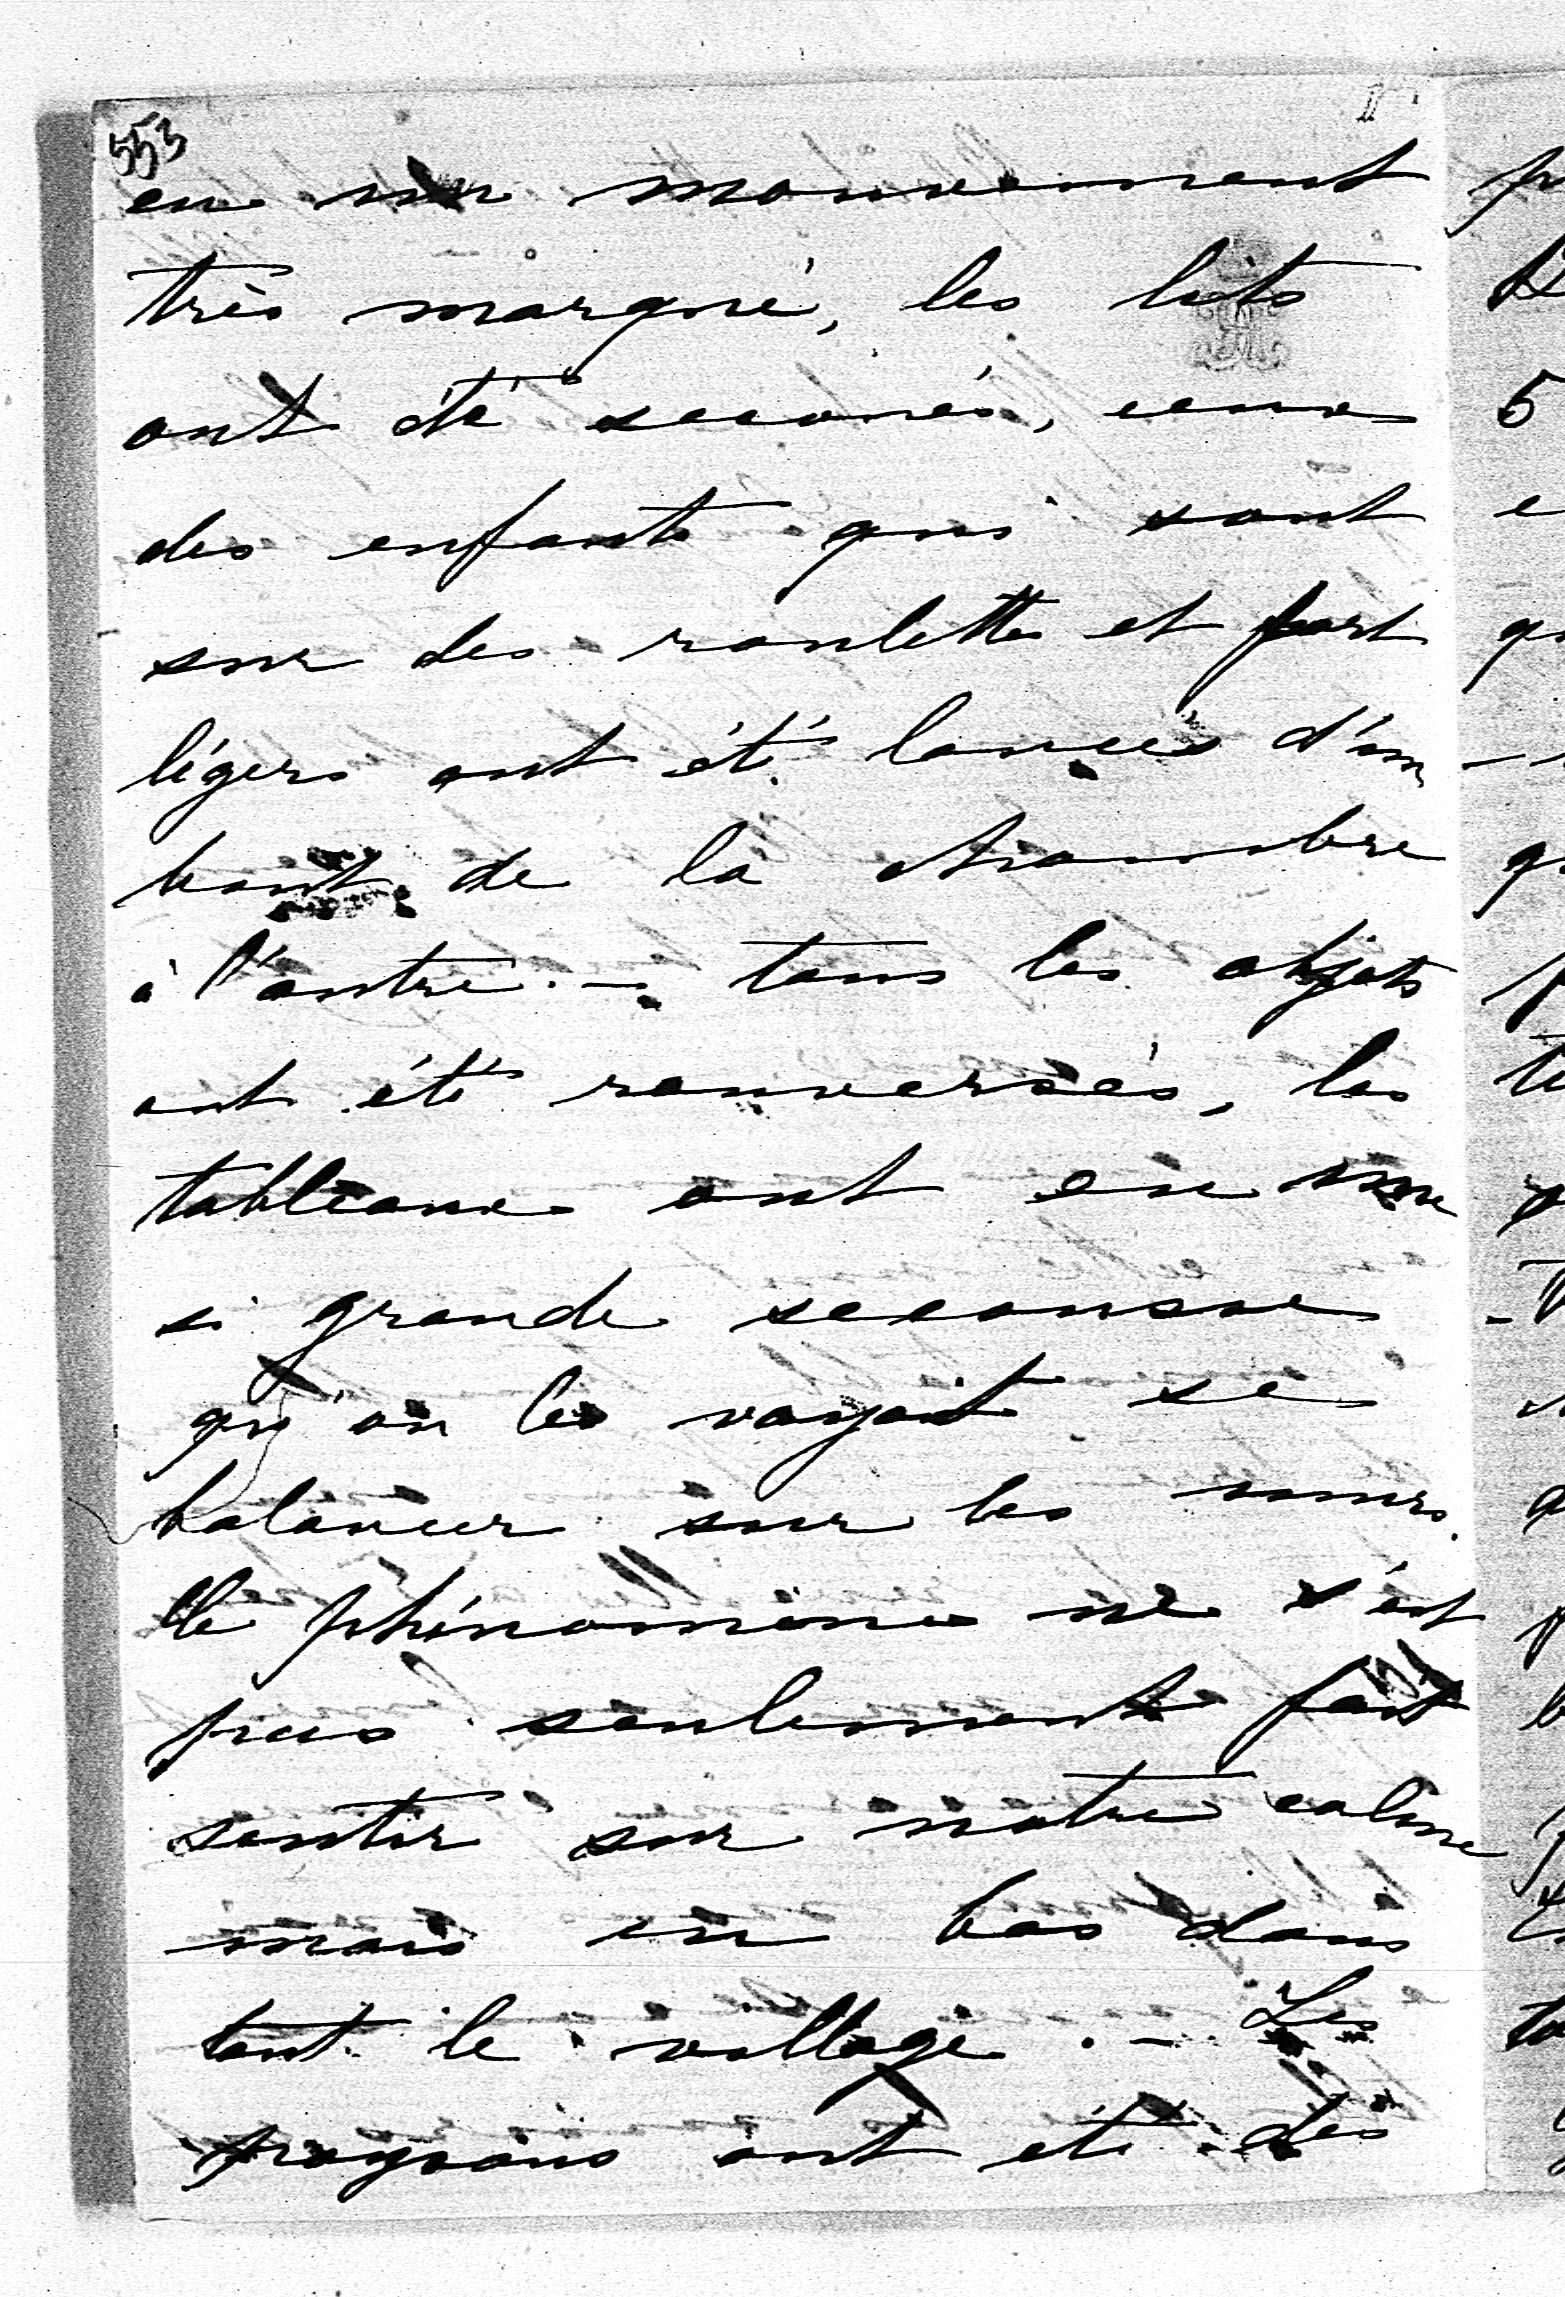 553
eu un mouvement
très marqué, les lits
ont été secoués, ceux
des enfants qui sont
sur des roulettes et fort
légers ont été lancés d'un
bout de la chambre
à l'autre. — tous les objets
ont été renversés, les
tableaux ont eu une
si grande secousse
qu'on les voyait se
balancer sur les murs.
Le phénomène ne s'est
pas seulement fait
sentir sur notre colline
mais en bas dans
tout le village. — Les
paysans ont été des